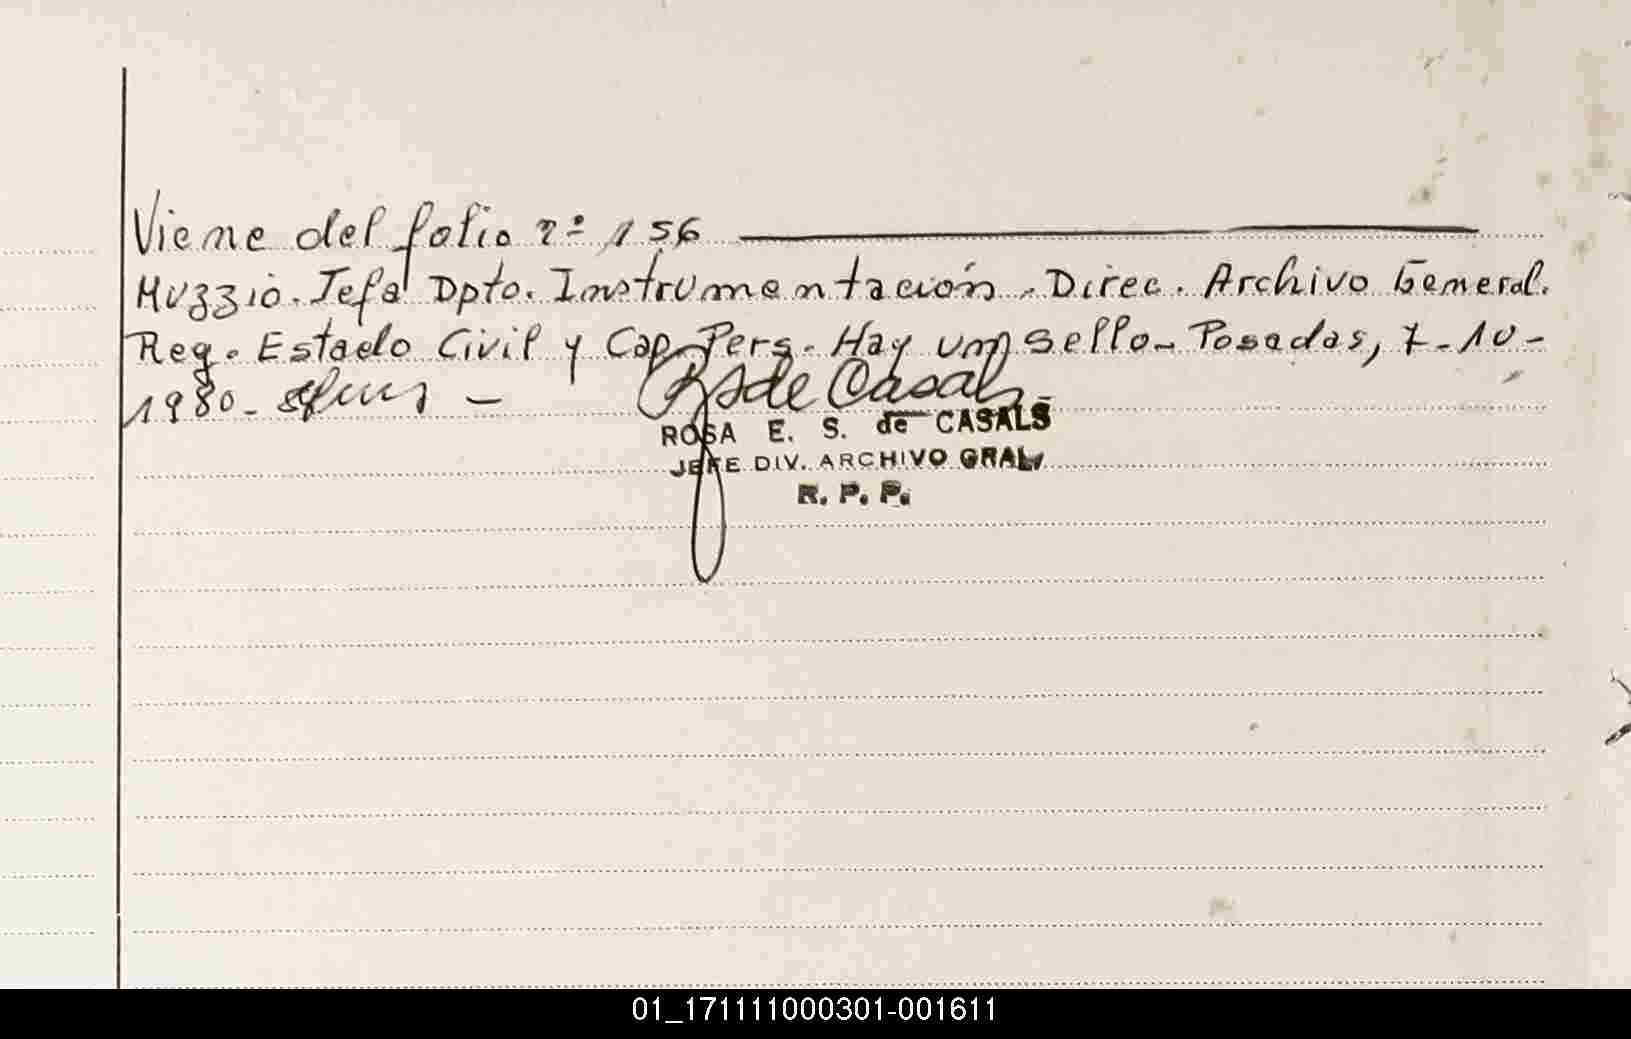 Viene del folio nº 156
Muzzio. Jefa Dpto. Instrumentación. Direc. Archivo General.
Reg. Estado Civil y Cap. Pers. Hay un sello - Posadas, 7-10-
1980.
R S de Casals
ROSA E. S. de CASALS
JEFE DIV. ARCHIVO GRAL.
R. P. P.
01_171111000301-001611